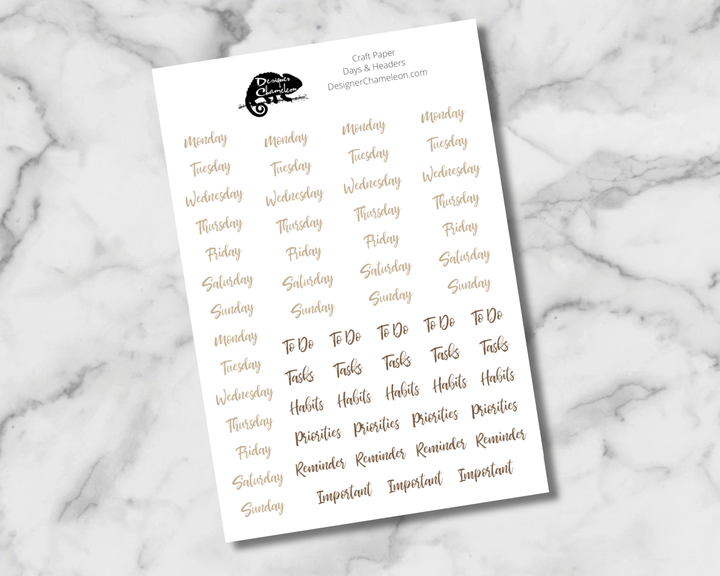 Designer
Chameleon
Craft Paper
Days & Headers
DesignerChameleon.com
Monday Monday Monday Monday
Tuesday Tuesday Tuesday Tuesday
Wednesday Wednesday Wednesday Wednesday
Thursday Thursday Thursday Thursday
Friday Friday Friday Friday
Saturday Saturday Saturday Saturday
Sunday Sunday Sunday Sunday
Monday To Do To Do To Do To Do To Do
Tuesday Tasks Tasks Tasks Tasks Tasks
Wednesday Habits Habits Habits Habits Habits
Thursday Priorities Priorities Priorities Priorities
Friday Reminder Reminder Reminder Reminder
Saturday Important Important Important
Sunday